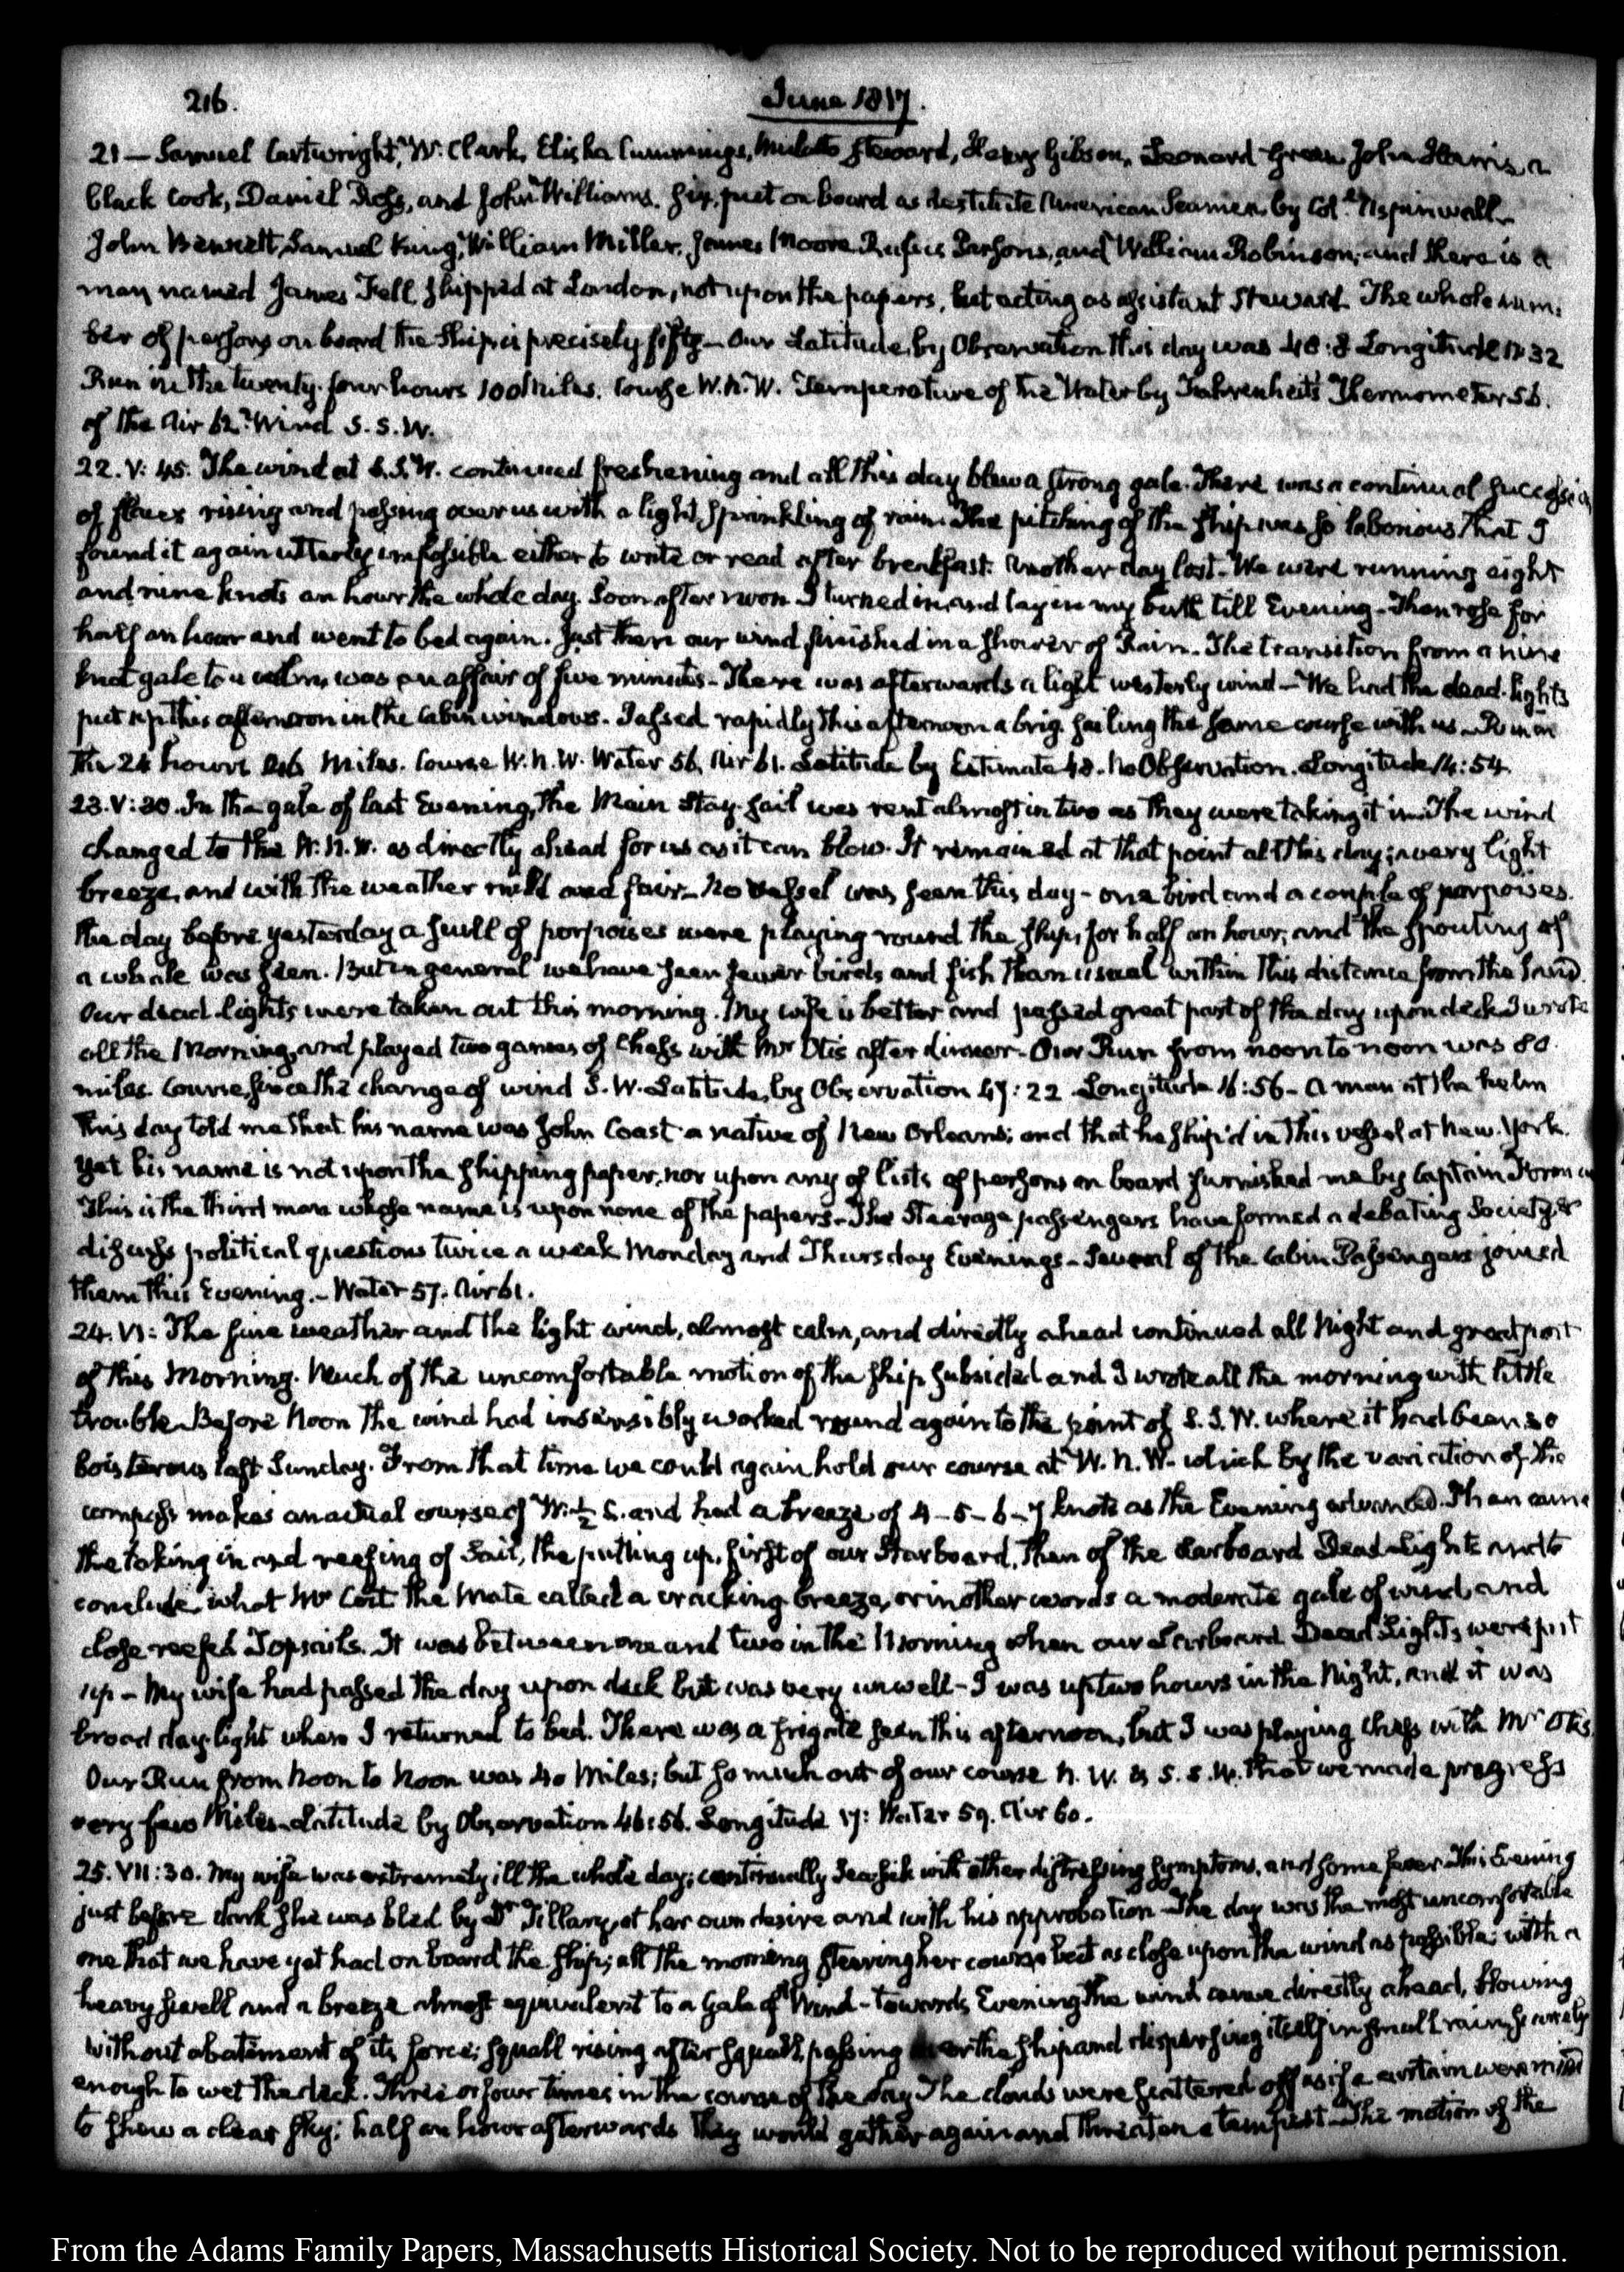 216. June 1817.
21 — Samuel Cartwright, W. Clark, Elisha Cummings, Mulatto Steward, Henry Gibson, Leonard Green John Harris, a
black Cook, Daniel Ross, and John Williams. Six, put on board as destitute American Seamen by Col. Aspinwall
John Bennett, Samuel King, William Miller, James Moore Rufus Parsons, and William Robinson; and there is a
man named James Fell shipped at London, not upon the papers, but acting as assistant Steward. The whole num-
ber of persons on board the Ship is precisely fifty — Our Latitude, by Observation this day was 48:8 Longitude 11:32
Run in the twenty-four hours 100 Miles. Course W.N.W. Temperature of the Water by Fahrenheit's Thermometer 56.
of the Air 62. Wind S.S.W.
22. V:45. The wind at S.S.W. continued freshening and all this day blew a strong gale. There was a continual succession
of rising and passing over us with a light sprinkling of rain. The pitching of the ship was so laborious that I
found it again utterly impossible either to write or read after breakfast. Another day lost — We were running eight
and nine knots an hour the whole day. Soon after noon I turned in, and lay in my birth till Evening — Then rose for
half an hour and went to bed again. Just then our wind finished in a shower of Rain — The transition from a nine
knot gale to a calm, was an affair of five minutes — There was afterwards a light westerly wind — We had the dead-lights
put up this afternoon in the Cabin windows. Passed rapidly this afternoon a brig sailing the same course with us — Run in
the 24 hours Miles. Course W.N.W. Water 56, Air 61. Latitude by Estimate 48. No Observation. Longitude 14:54.
23. V:30. In the gale of last Evening, the Main Stay-sail was rent almost in two as they were taking it in. The wind
changed to the W.N.W. as directly ahead for us as it can blow. It remained at that point all this day; a very light
breeze, and with the weather mild and fair — No vessel was seen this day — one bird and a couple of porpoises.
The day before yesterday a scull of porpoises were playing round the ship, for half an hour; and the spouting of
a whale was seen. But in general we have seen fewer birds and fish than usual within this distance from the land.
Our dead-lights were taken out this morning. My wife is better and passed great part of the day upon deck. I wrote
all the Morning, and played two games of Chess with Mr Otis after dinner — Our Run from noon to noon was 80
miles. Course, since the change of wind S.W. Latitude, by Observation 47:22 Longitude 16:56 — A man at the helm
this day told me that his name was John Coast a native of New Orleans; and that he ship'd in this vessel at New-York.
Yet his name is not upon the shipping paper, nor upon any of lists of persons on board furnished me by Captain
This is the third man whose name is upon none of the papers — The Steerage passengers have formed a debating Society to
discuss political questions twice a week Monday and Thursday Evenings — Several of the Cabin Passengers joined
them this Evening. — Water 57. Air 61.
24. VI: The fine weather and the light wind, almost calm, and directly ahead continued all Night and great part
of this Morning. Much of the uncomfortable motion of the ship subsided and I wrote all the morning with little
trouble. Before Noon the wind had insensibly worked round again to the point of S.S.W. where it had been so
boisterous last Sunday. From that time we could again hold our course at W.N.W. which by the variation of the
compass makes an actual course of W. ½ S. and had a breeze of 4-5-6-7 knots as the Evening advanced. Then came
the taking in and reefing of Sail, the putting up, first of our Starboard, then of the Larboard Dead-Lights and to
conclude what Mr Cort the Mate called a cracking breeze, or in other words a moderate gale of wind, and
close reefed Topsails. It was between one and two in the Morning when our Larboard Dead Lights were put
up — My wife had passed the day upon deck but was very unwell — I was up two hours in the Night, and it was
broad day-light when I returned to bed. There was a frigate seen this afternoon, but I was playing chess with Mr Otis.
Our Run from Noon to Noon was 40 Miles; but so much out of our course N.W. & S.S.W. that we made progress
very few Miles — Latitude by Observation 46:56. Longitude 17: Water 59. Air 60.
25. VII:30. My wife was extremely ill the whole day; continually Sea-sick with other distressing symptoms, and some fever. This Evening
just before dark she was bled by Dr Tillary, at her own desire and with his approbation — The day was the most uncomfortable
one that we have yet had on board the ship; all the morning steering her course but as close upon the wind as possible; with a
heavy swell and a breeze almost equivalent to a Gale of Wind — towards Evening the wind came directly ahead, blowing
without abatement of its force; squall rising after squall, passing over the ship and dispersing itself in small rain, scarcely
enough to wet the deck. Three or four times in the course of the day the clouds were scattered off as if a curtain were
to shew a clear sky; half an hour afterwards they would gather again and threaten a tempest. The motion of the
From the Adams Family Papers, Massachusetts Historical Society. Not to be reproduced without permission.